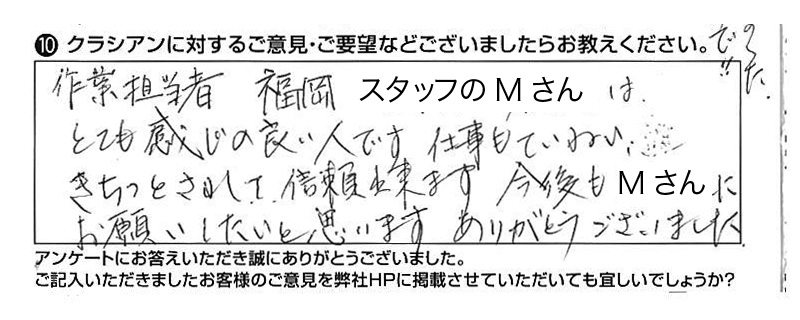 ❿ クラシアンに対するご意見・ご要望などございましたらお教えください。
作業担当者 福岡 スタッフのMさん は
とても感じの良い人です 仕事もていねい、
きちっとされして信頼出来ます 今後も Mさん に
お願いしたいと思います ありがとうございました
アンケートにお答えいただき誠にありがとうございました。
ご記入いただきましたお客様のご意見を弊社HPに掲載させていただいても宜しいでしょうか?